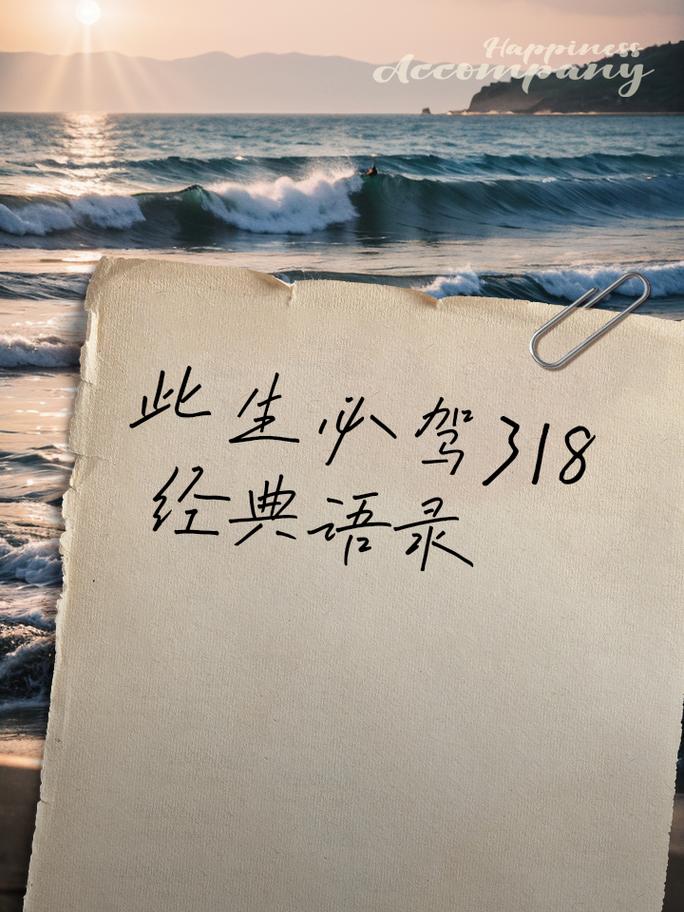 Happiness
Accompany
此生必驾318
经典语录